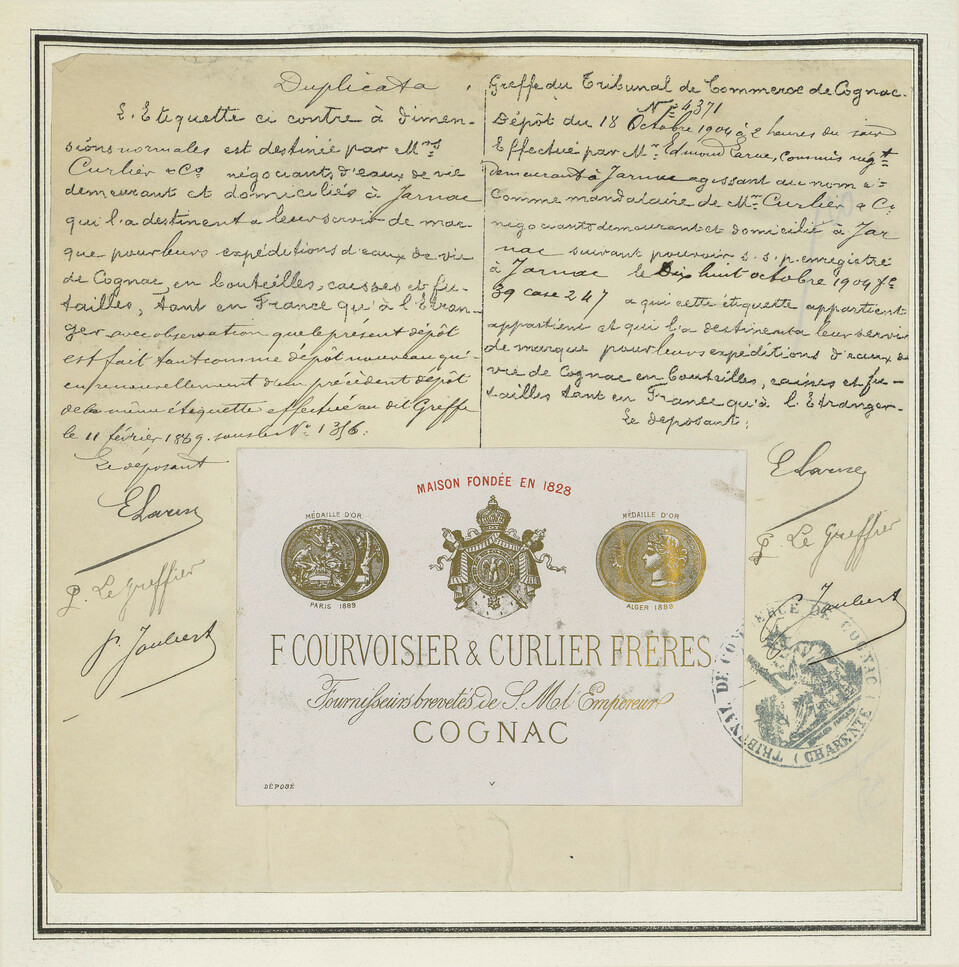 Duplicata
L'Etiquette ci contre à dimen-
sions normales est destinée par Mrs
Curlier & Co négociants, d'eaux de vie
demeurant et domiciliés à Jarnac
qui l'a destinent a leur servir de mar-
que pour leurs expéditions d'eaux de vie
de Cognac, en bouteilles, caisses et fu-
tailles, tant en France qu'à l'Etran-
ger avec observation que le présent dépôt
est fait tant comme dépôt nouveau qu'-
en renouvellement d'un précédent dépôt
de la même étiquette effectué au dit Greffe
le 11 février 1889. sous le No 1356:
Le déposant
ELarue
P. Le Greffier
P. Joubert
Greffe du Tribunal de Commerce de Cognac.
No 4371
Dépôt du 18 Octobre 1904 à 2 heures du soir
Effectué par Mr Edmond Larue, Commis négt
demeurant à Jarnac agissant au nom et
comme mandataire de Mrs Curlier & Co
négociants demeurant et domicilié à Jar
nac suivant pouvoir s.s.p. enregistré
à Jarnac le Dix huit octobre 1904 Fo
39 case 247 a qui cette étiquette appartient
appartient et qui l'a destinent a leur servir
de marque pour leurs expéditions d'eaux de
vie de Cognac en bouteilles, caisses et fu-
tailles tant en France qu'à l'Etranger-
Le déposant:
ELarue
P. Le Greffier
P. Joubert
MAISON FONDÉE EN 1828
MÉDAILLE D'OR
PARIS 1889
MÉDAILLE D'OR
ALGER 1889
F. COURVOISIER & CURLIER FRÈRES
Fournisseurs brevetés de S. M. l'Empereur
COGNAC
DÉPOSÉ
TRIBUNAL DE COMMERCE DE COGNAC (CHARENTE)